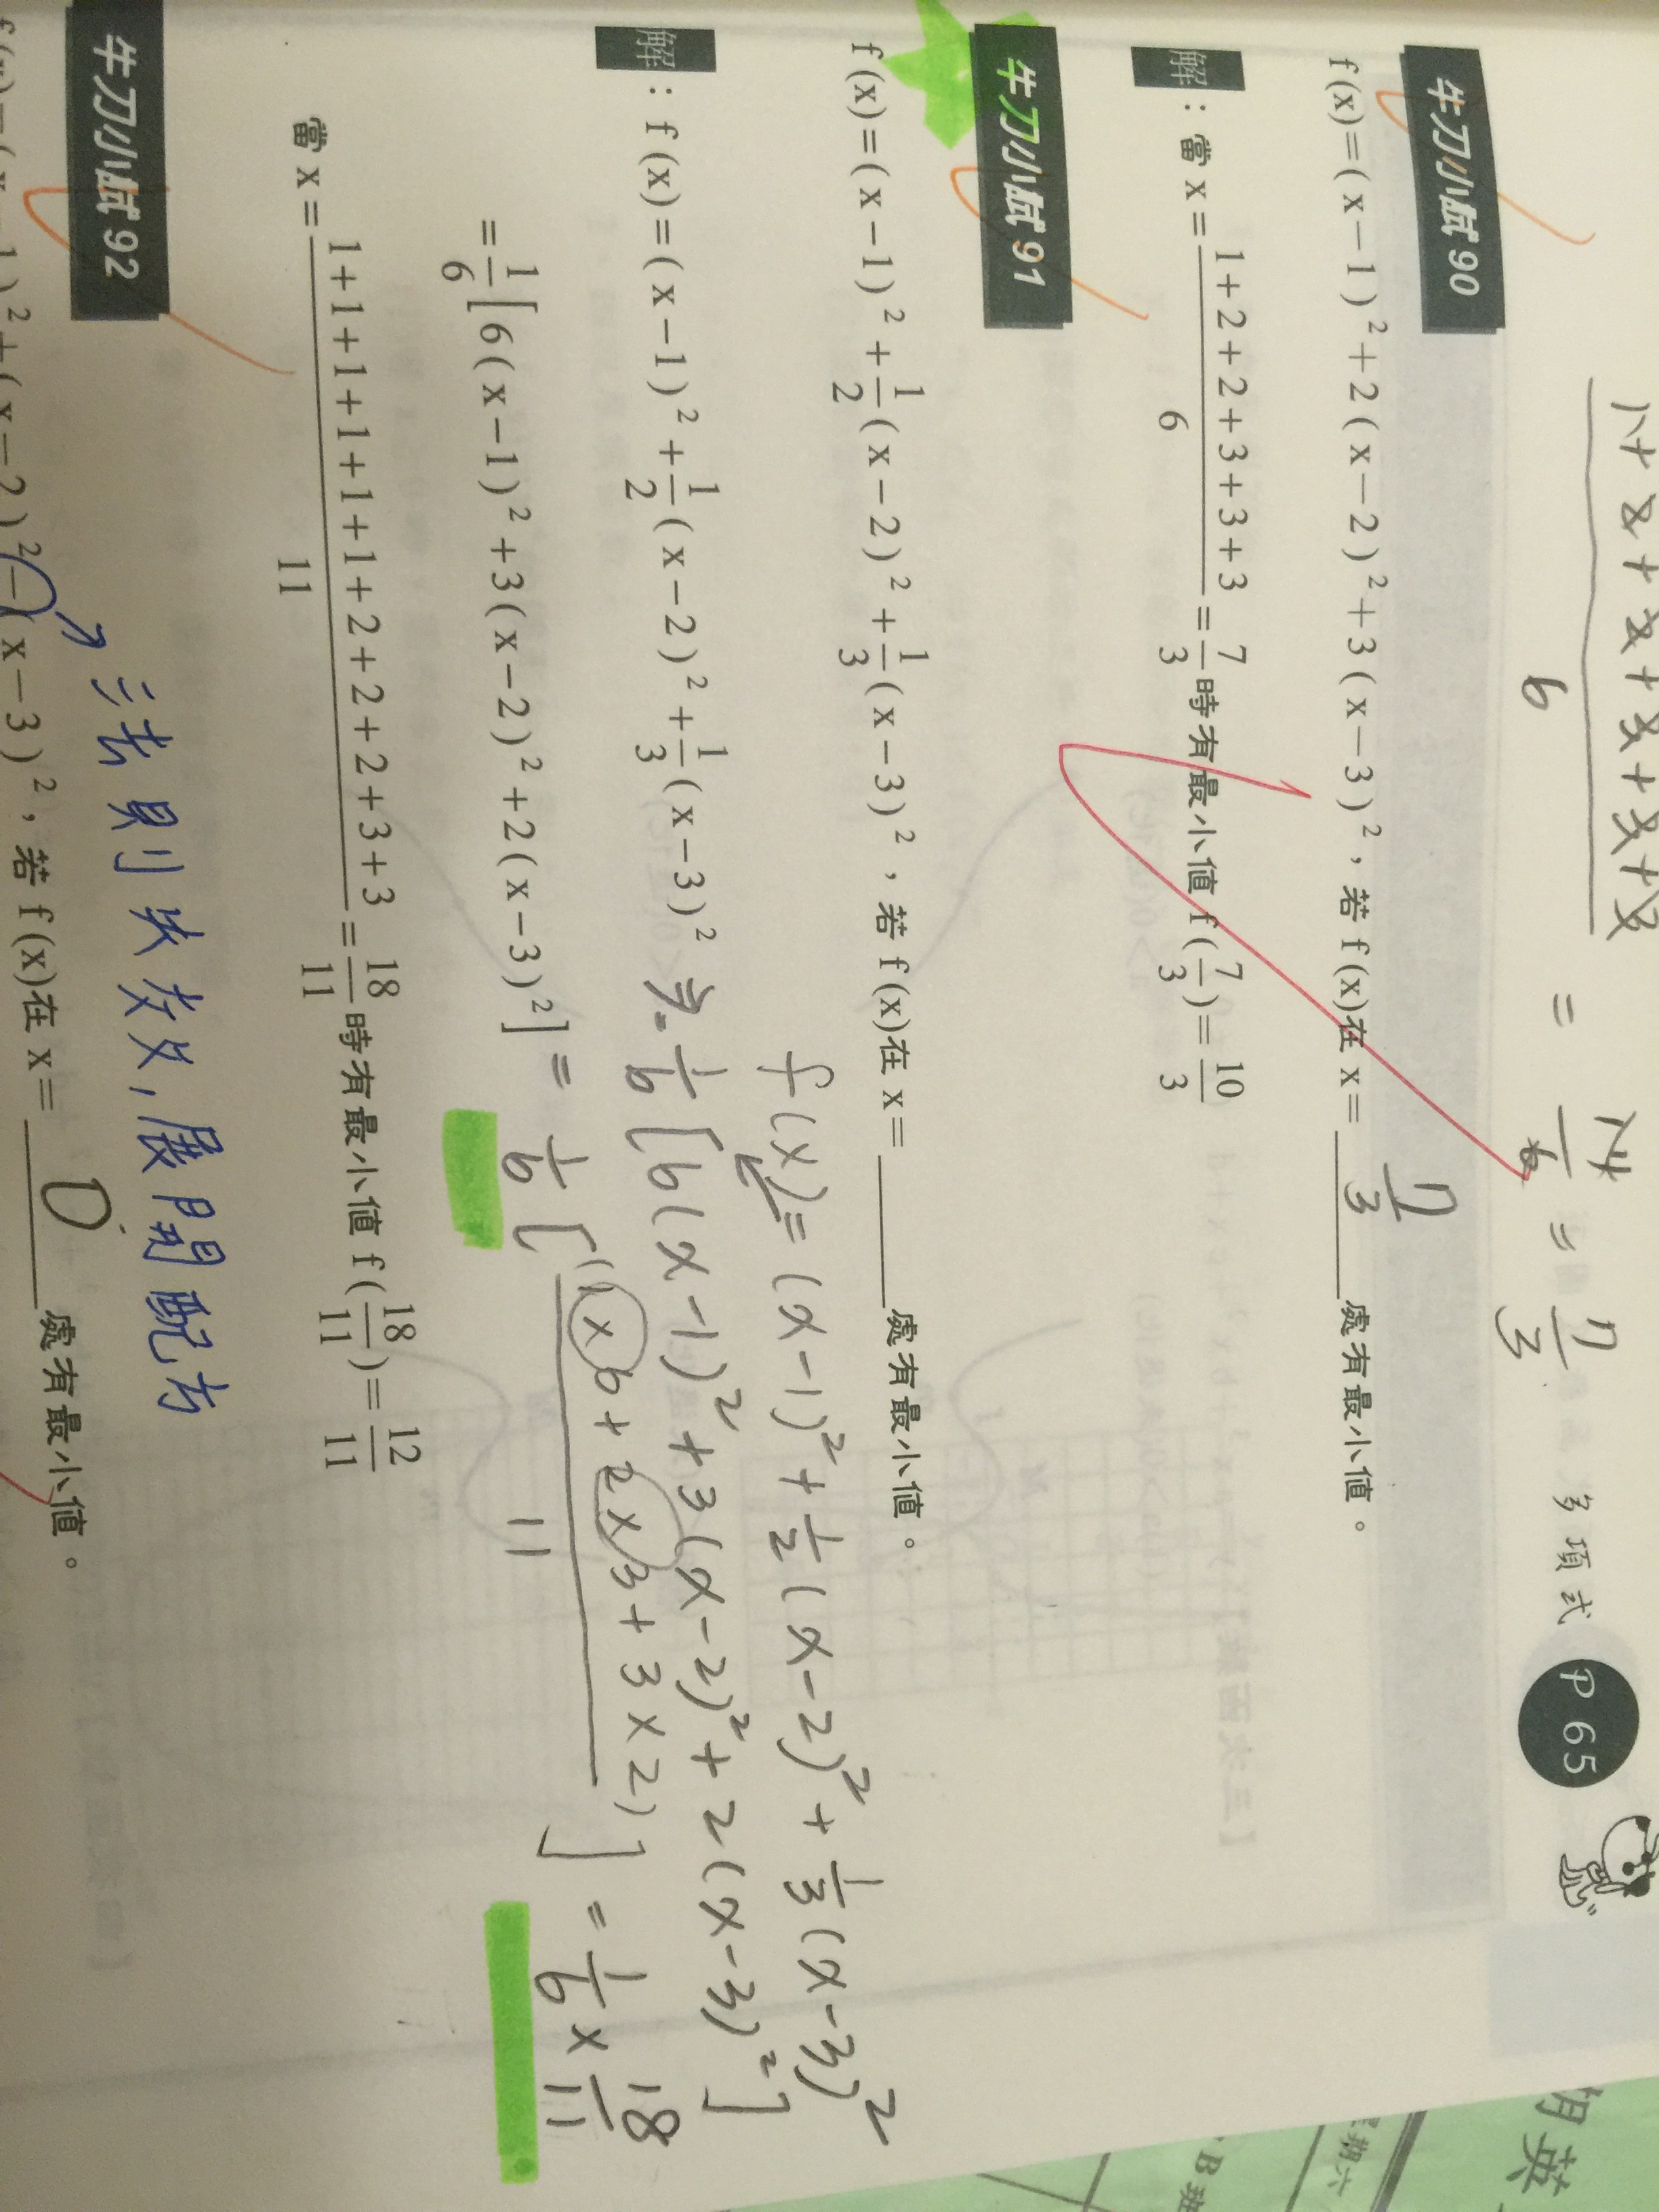 1+2+2+3+3+3
6
= 14/6 = 7/3
多項式 P 65
牛刀小試 90
f(x)=(x−1)²+2(x−2)²+3(x−3)²，若 f(x)在 x=  7/3  處有最小值。
解：當 x=(1+2+2+3+3+3)/6=7/3時有最小值 f(7/3)=10/3
牛刀小試 91
f(x)=(x−1)²+1/2(x−2)²+1/3(x−3)²，若 f(x)在 x=______處有最小值。
f(x)=(x-1)²+1/2(x-2)²+1/3(x-3)²
解：f(x)=(x−1)²+1/2(x−2)²+1/3(x−3)²
1/6[6(x-1)²+3(x-2)²+2(x-3)²]
=1/6[6(x−1)²+3(x−2)²+2(x−3)²]
= 1/6[(1×6+2×3+3×2)/11] = 1/6 × 18/11
當 x=(1+1+1+1+1+1+2+2+2+3+3)/11=18/11時有最小值 f(18/11)=12/11
法則失效,展開配方
牛刀小試 92
f(x)=(x−1)²+(x−2)²−(x−3)²，若 f(x)在 x=  0  處有最小值。
星期六
B班